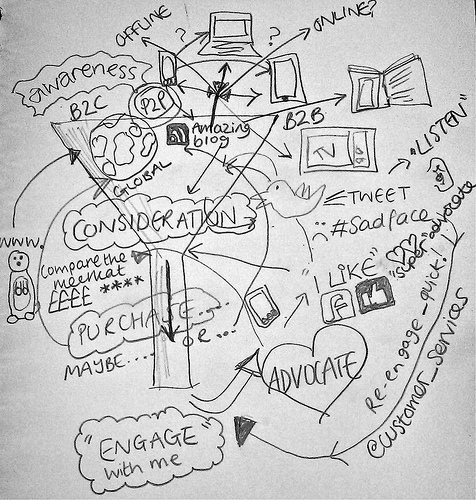 OFFLINE
ONLINE?
?
?
awareness
B2C
P2P
B2B
Amazing
blog
TV
GLOBAL
"LISTEN"
TWEET
#Sadface
CONSIDERATION
www.
Compare the
meerkat
££££ ****
"LIKE"
f
"super"advocate
PURCHASE....
MAYBE.... OR...!
ADVOCATE
Re-engage_quick!
@customer_services
"ENGAGE"
with me